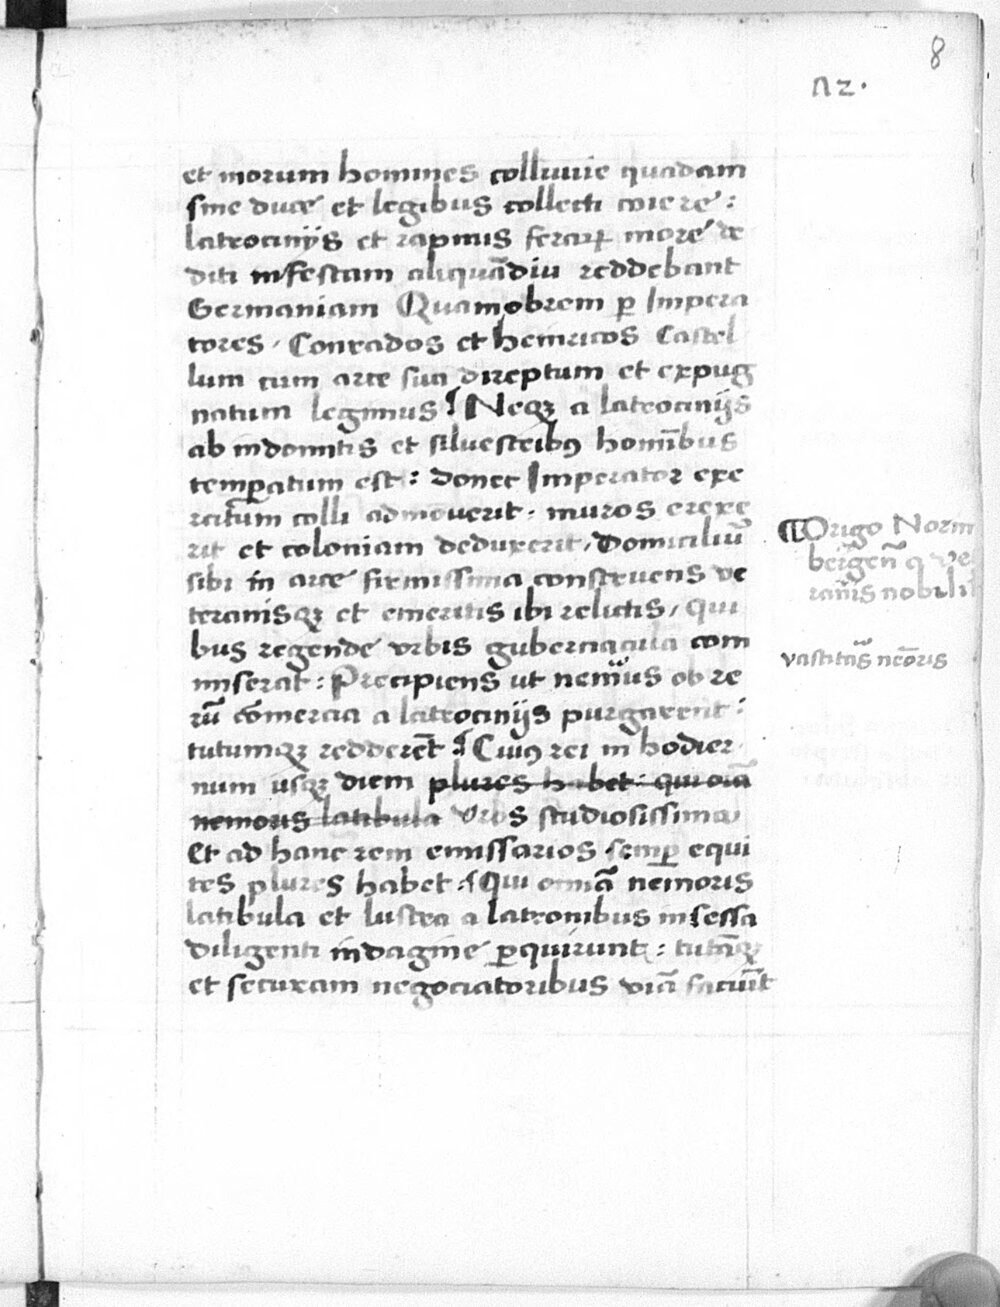 8
n2.
et morum homines colluuie quadam
sine duce et legibus collecti coiere:
latrocinijs et rapinis feraꝝ more de
diti infestam aliquādiu reddebant
Germaniam Quamobrem ꝑ Impera
tores, Conrados et heinricos Castel
lum cum arce sua direptum et expug
natum legimus: Neqꝫ a latrocinijs
ab indomitis et siluestribꝰ homībus
temꝑatum est: donec Imperator exe
rcitum colli admouerit. muros erexe
rit et coloniam deduxerit, Domiciliū
sibi in arce firmissima construens ve
teranisqꝫ et emeritis ibi relictis, qui
bus regende vrbis gubernacula com
miserat: Precipiens ut nemus ob re
rū cōmercia a latrocinijs purgarent:
tutumqꝫ redderēt: Cuiꝰ rei in hodier
num usqꝫ diem plures habet: qui oīa
nemoris latibula Vrbs studiosissima
Et ad hanc rem emissarios semꝑ equi
tes plures habet: Qui omīa nemoris
latibula et lustra a latronibus insessa
diligenti indagine ꝑquirunt: tutāqꝫ
et securam negociatoribus viā faciūt
¶Origo Norm
bergeñ q ve
ranis nobili
vastitas neoris